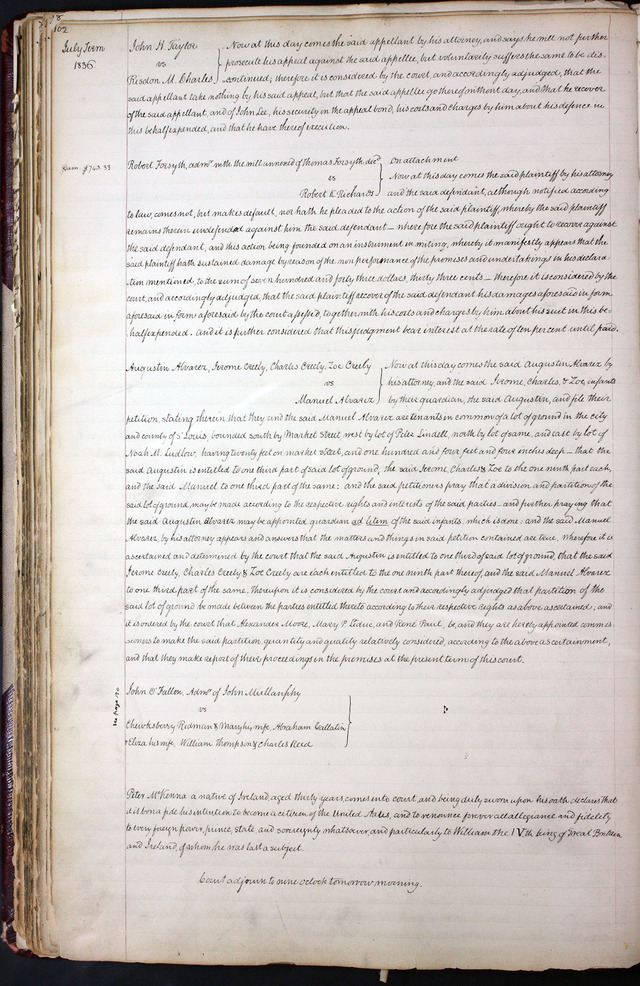 102
July Term
1836
John H. Taylor
vs
Risdon M. Charles
Now at this day comes the said appellant by his attorney, and says he will not further
prosecute his appeal against the said appellee, but voluntarily suffers the same to be dis-
continued; therefore it is considered by the court, and accordingly adjudged, that the
said appellant take nothing by his said appeal, but that the said appellee go thereof without day, and that he recover
of the said appellant, and of John Lee, his security in the appeal bond, his costs and charges by him about his defence in
this behalf expended, and that he have thereof execution.
Dam. $743.33
Robert Forsyth, admr. with the will annexed of Thomas Forsyth decd
vs
Robert K. Richards
On attachment
Now at this day comes the said plaintiff by his attorney
and the said defendant, although notified according
to law, comes not, but makes default, nor hath he pleaded to the action of the said plaintiff, whereby the said plaintiff
remains therein undefended against him the said defendant – wherefore the said plaintiff ought to recover against
the said defendant, and this action being founded on an instrument in writing, whereby it manifestly appears that the
said plaintiff hath sustained damage by reason of the non performance of the promises and undertakings in his declara
tion mentioned, to the sum of seven hundred and forty three dollars, thirty three cents – therefore it is considered by the
court, and accordingly adjudged, that the said plaintiff recover of the said defendant his damages aforesaid in form
aforesaid in form aforesaid by the court assessed, together with his costs and charges by him about his suit in this be-
half expended. And it is further considered that this judgment bear interest at the rate of ten per cent until paid.
Augustin Alvarez, Jerome Creely, Charles Creely, Zoe Creely
vs
Manuel Alvarez
Now at this day comes the said Augustin Alvarez by
his attorney, and the said Jerome, Charles, & Zoe, infants
by their guardian, the said Augustin, and file their
petition, stating therein that they and the said Manuel Alvarez are tenants in common of a lot of ground in the city
and county of St Louis, bounded south by Market Street, west by lot of Peter Lindell, north by lot of same, and east by lot of
Noah M. Ludlow, having twenty feet on market street, and one hundred and four feet and four inches deep – that the
said Augustin is entitled to one third part of said lot of ground, the said Jerome, Charles & Zoe to the one ninth part each,
and the said Manuel to one third part of the same: and the said petitioners pray that a division and partition of the
said lot of ground may be made according to the respective rights and interests of the said parties – and further praying that
the said Augustin Alvarez may be appointed guardian ad litem of the said infants, which is done: and the said Manuel
Alvarez, by his attorney appears and answers that the matters and things in said petition contained are true. Wherefore it is
ascertained and determined by the court that the said Augustin is entitled to one third of said lot of ground, that the said
Jerome Creely, Charles Creely & Zoe Creely are each entitled to the one ninth part thereof, and the said Manuel Alvarez
to one third part of the same. Thereupon it is considered by the court and accordingly adjudged that partition of the
said lot of ground be made between the parties entitled thereto according to their respective rights as above ascertained; and
it is ordered by the court that Alexander Moore, Mary P. Leduc, and René Paul, be, and they are hereby appointed commis
sioners to make the said partition, quantity and quality relatively considered, according to the above ascertainment,
and that they make report of their proceedings in the premises at the present term of this court.
see page 120
John O'Fallon, Admr of John Mullanphy
vs
Chewksberry Redman & Mary his wife, Abraham Gallatin
& Eliza his wife, William Thompson & Charles Reed
Peter McKenna a native of Ireland, aged thirty years, comes into court and being duly sworn upon his oath declares that
it is bona fide his intention to become a citizen of the United States, and to renounce forever all allegiance and fidelity
to every foreign power, prince, state, and sovereignty whatsoever and particularly to William the IVth king of Great Britain
and Ireland, of whom he was last a subject.
Court adjourn to nine oclock tomorrow morning.